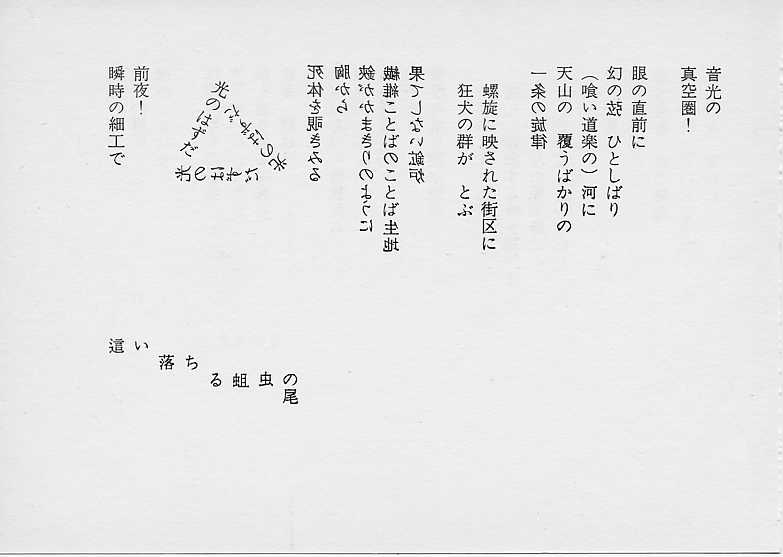 音光の
真空圏!
眼の直前に
幻の弦 ひとしばり
(喰い道楽の)河に
天山の 覆うばかりの
一条の旋律
螺旋に映された街区に
狂犬の群が とぶ
果てしない鉱炉
繊維ことばのことば生地
鋏がかまきりのように
胸から
死体を覗きみる
光のはずだ
光のはずだ
光のはずだ
前夜!
瞬時の細工で
這い落ちる蛆虫の尾